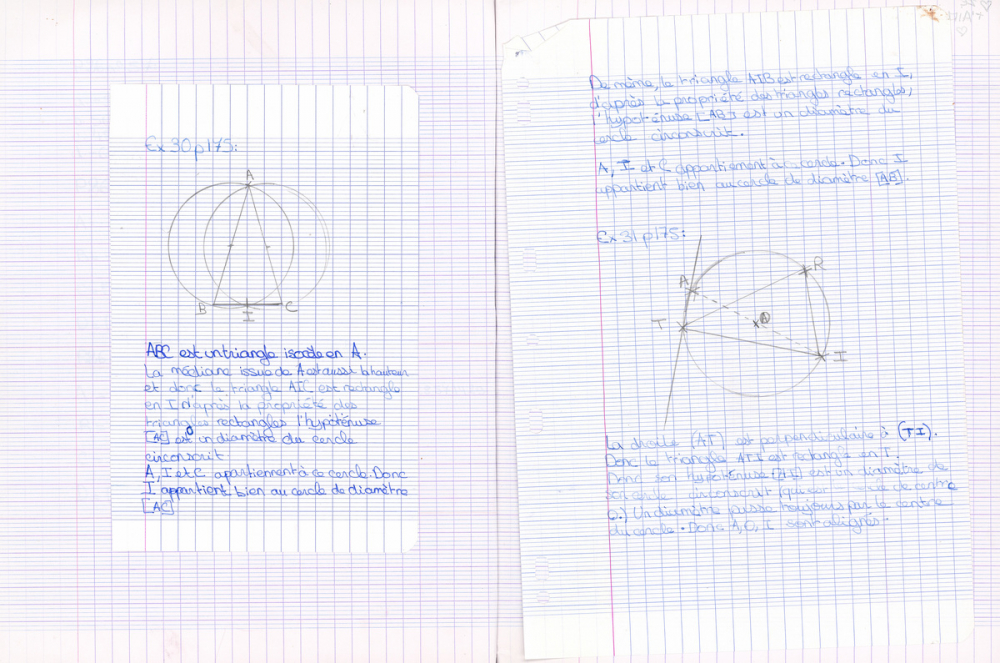 Ex 30 p175:
A
B
C
I
ABC est un triangle isocèle en A.
La médiane issue de A est aussi la hauteur
et donc le triangle AIC est rectangle
en I. D'après la propriété des
triangles rectangles l'hypoténuse
[AC] est un diamètre du cercle
circonscrit
A, I et C apartiennent à ce cercle. Donc
I appartient bien au cercle de diamètre
[AC]
De même, le triangle AIB est rectangle en I,
d'après la propriété des triangles rectangles,
l'hypoténuse [AB] est un diamètre du
cercle circonscrit.
A, I et C appartiennent à ce cercle. Donc I
appartient bien au cercle de diamètre [AB].
Ex 31 p175:
A
R
T
O
I
La droite (AT) est perpendiculaire à (TI).
Donc le triangle ATI est rectangle en T.
Donc son hypoténuse [AI] est un diamètre de
son cercle circonscrit (qui est cercle de centre
O.) Un diamètre passe toujours par le centre
du cercle. Donc A, O, I sont alignés.